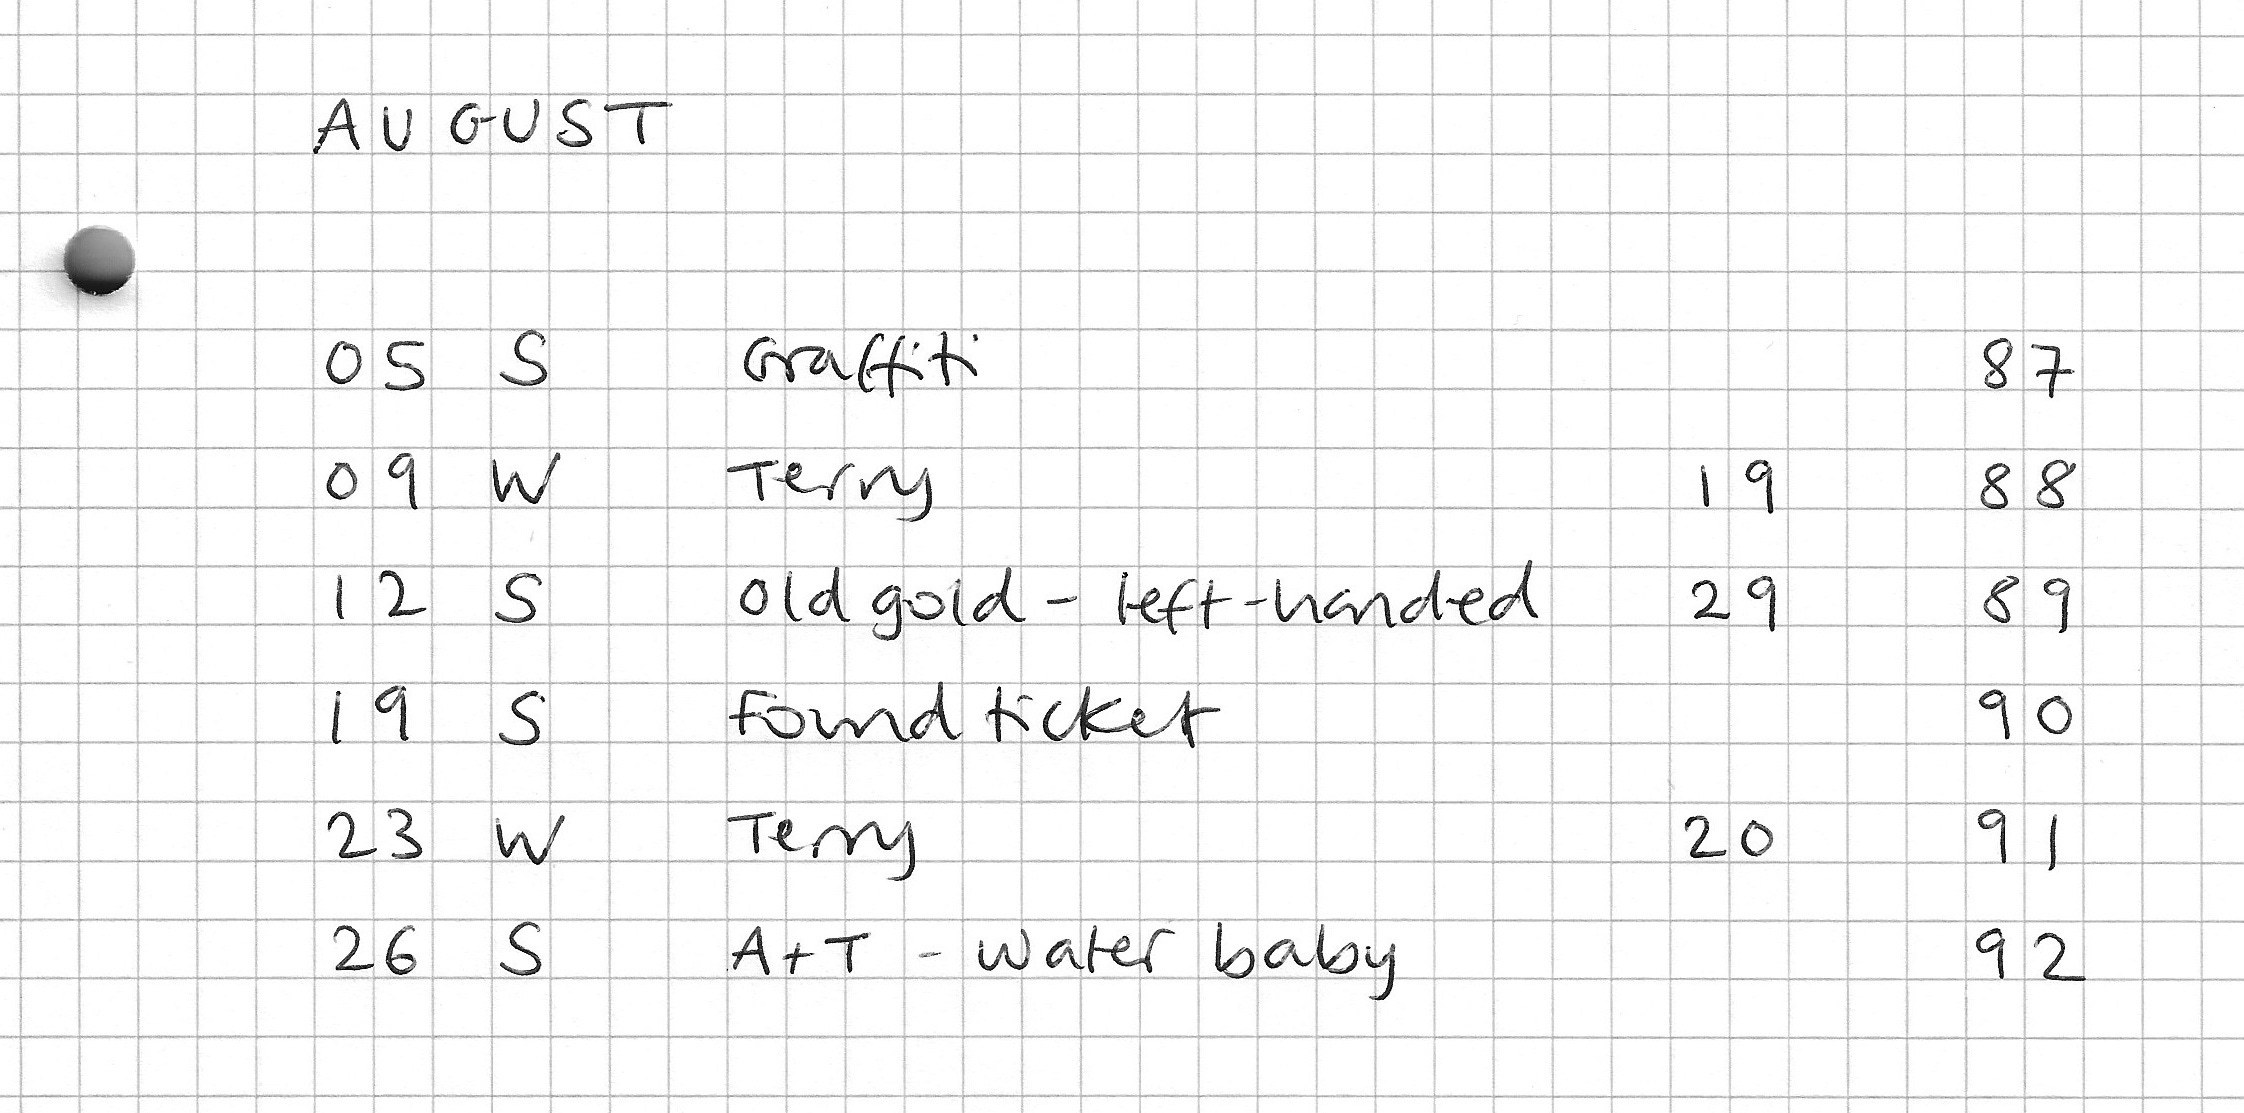 AUGUST
05 S Graffiti 87
09 W Terry 19 88
12 S Old gold - left-handed 29 89
19 S Found ticket 90
23 W Terry 20 91
26 S A+T - Water baby 92